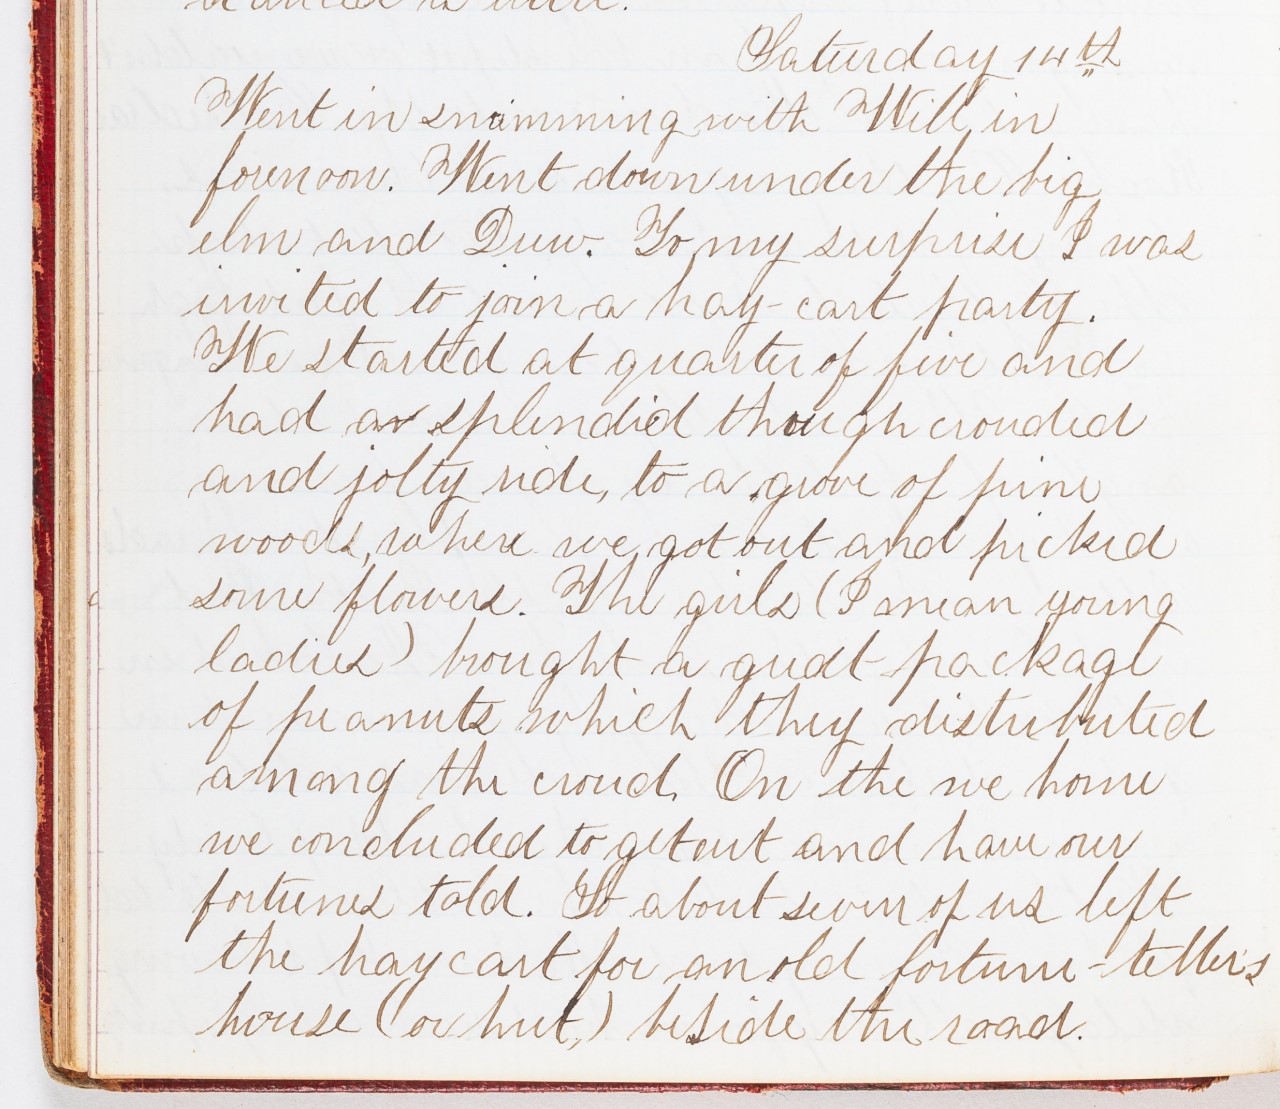 Saturday 14th
Went in swimming with Will in
forenoon. Went down under the big
elm and Drew. To my surprise I was
invited to join a hay-cart party.
We started at quarter of five and
had a splendid though crowded
and jolty ride, to a grove of pine
woods, where we got out and picked
some flowers. The girls (I mean young
ladies) brought a great package
of peanuts which they distributed
among the crowd. On the we home
we concluded to get out and have our
fortunes told. So about seven of us left
the hay cart for an old fortune-teller's
house (or hut,) beside the road.